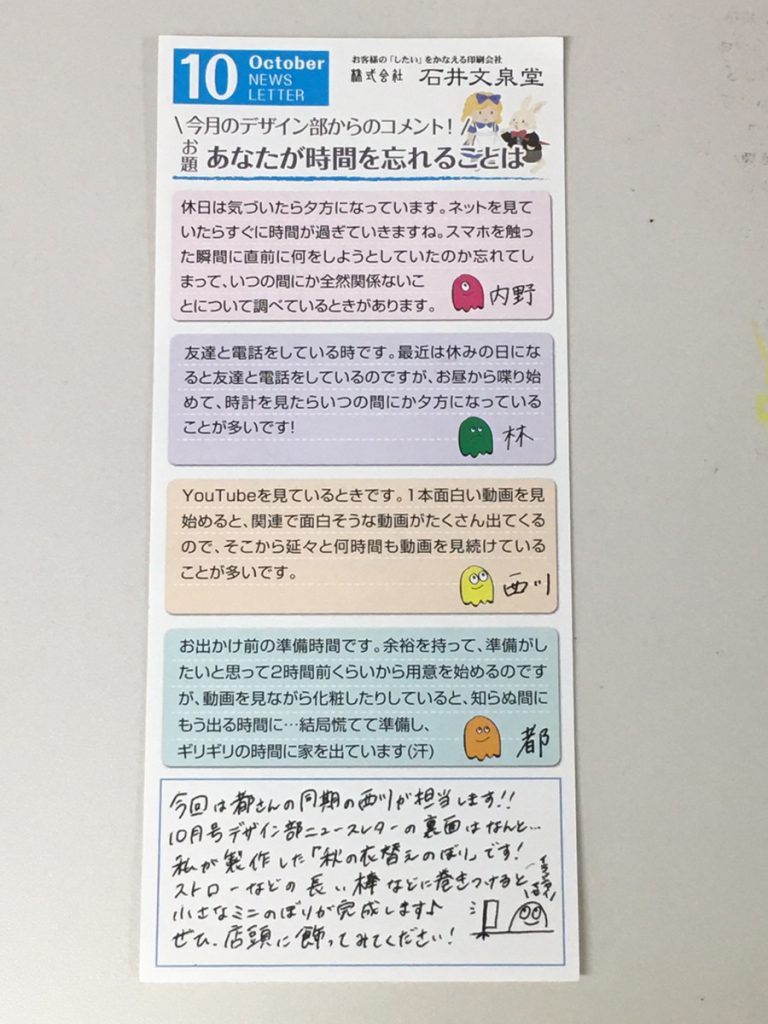 10
October
NEWS
LETTER
お客様の「したい」をかなえる印刷会社
株式会社 石井文泉堂
\今月のデザイン部からのコメント!/
お題 あなたが時間を忘れることは
休日は気づいたら夕方になっています。ネットを見て
いたらすぐに時間が過ぎていきますね。スマホを触っ
た瞬間に直前に何をしようとしていたのか忘れてし
まって、いつの間にか全然関係ないこ
とについて調べているときがあります。
内野
友達と電話をしている時です。最近は休みの日にな
ると友達と電話をしているのですが、お昼から喋り始
めて、時計を見たらいつの間にか夕方になっている
ことが多いです!
林
YouTubeを見ているときです。1本面白い動画を見
始めると、関連で面白そうな動画がたくさん出てくる
ので、そこから延々と何時間も動画を見続けている
ことが多いです。
西川
お出かけ前の準備時間です。余裕を持って、準備がし
たいと思って2時間前くらいから用意を始めるのです
が、動画を見ながら化粧したりしていると、知らぬ間に
もう出る時間に…結局慌てて準備し、
ギリギリの時間に家を出ています(汗)
都
今回は都さんの同期の西川が担当します!!
10月号デザイン部ニュースレターの裏面はなんと…
私が製作した「秋の衣替えのぼり」です!
ストローなどの長い棒などに巻きつけると
小さなミニのぼりが完成します♪
ぜひ、店頭に飾ってみてください!